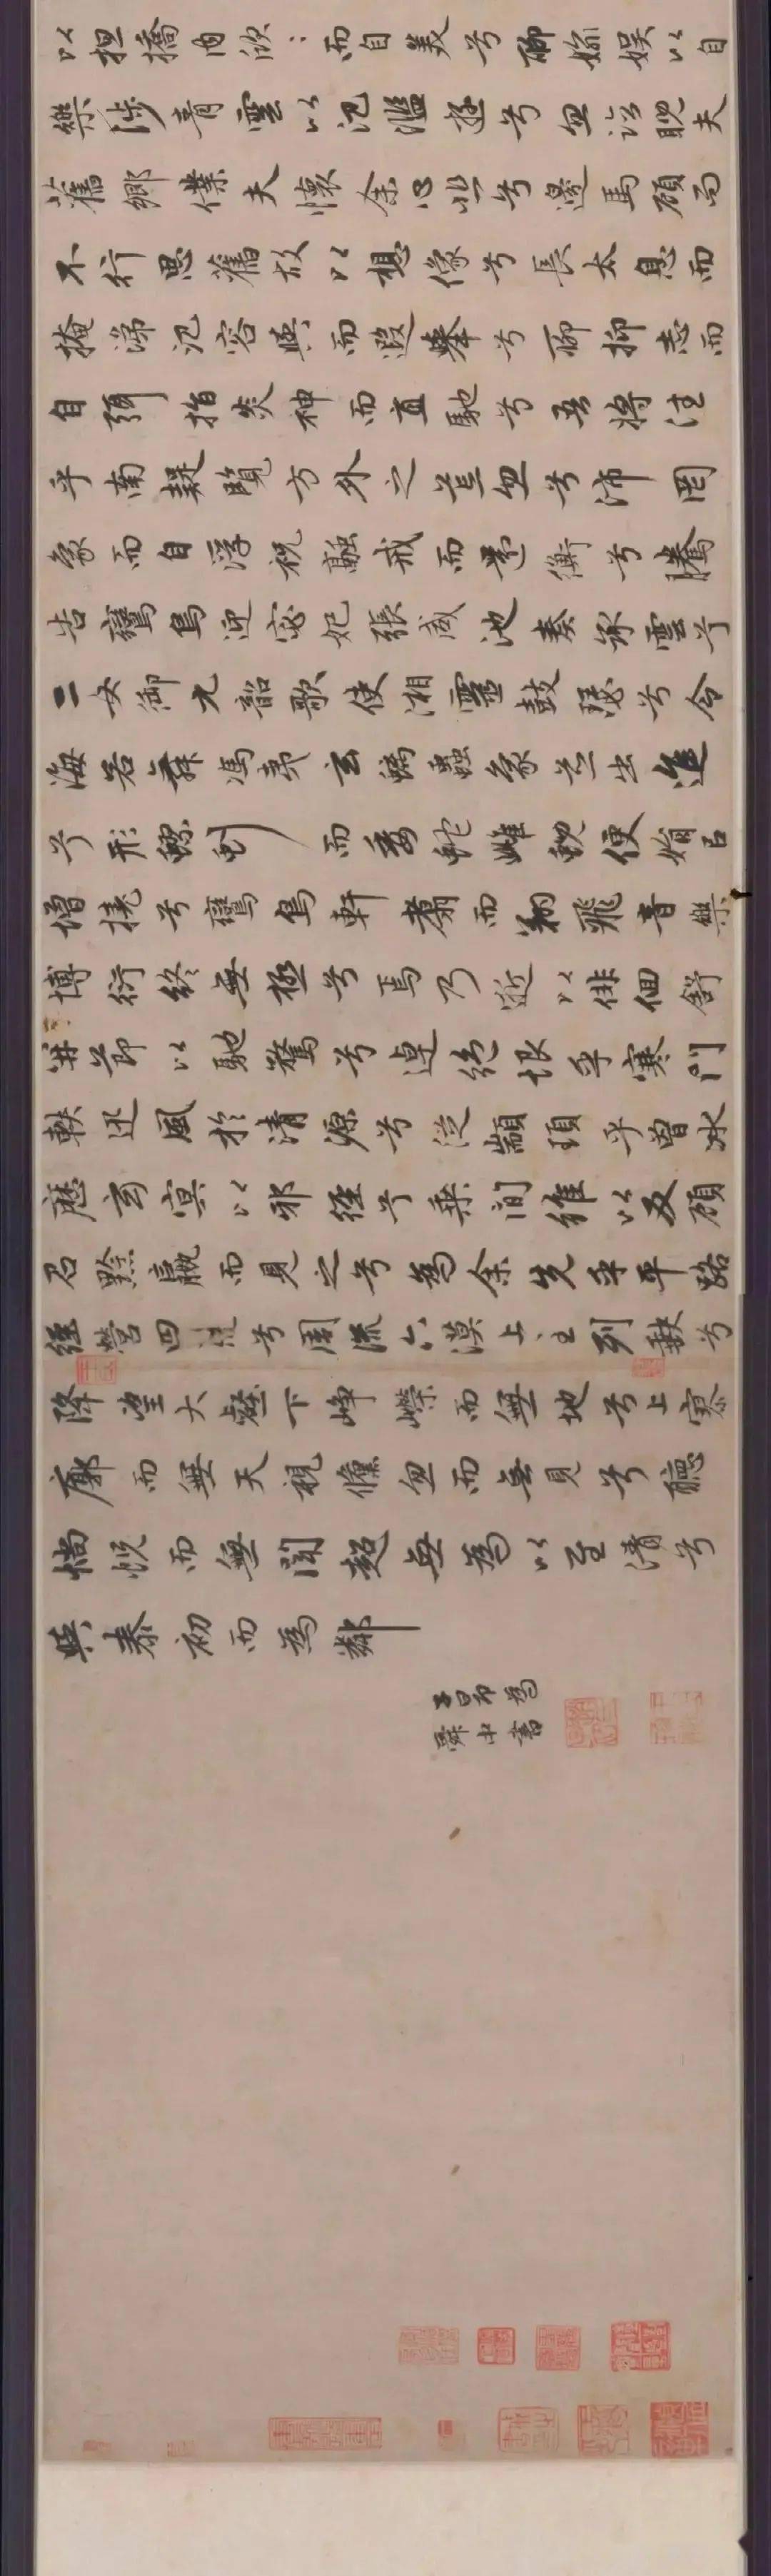 以担撟内欣〻而自美兮聊媮娱以自
樂涉青雲以汜濫遊兮忽臨睨夫
舊鄉僕夫懷余心悲兮邊馬顧而
不行思舊故以想像兮長太息而
掩涕汜容與而遐舉兮聊抑志而
自弭指炎神而直馳兮吾將往
乎南疑覽方外之荒忽兮沛罔
象而自浮祝融戒而還衡兮騰
告鸞鳥迎宓妃張咸池奏承雲兮
二女御九韶歌使湘靈鼓瑟兮令
海若舞馮夷玄螭蟲象並出進
兮形蟉虯而委蛇雌蜺便娟以
增撓兮鸞鳥軒翥而翔飛音樂
博衍終無極兮焉乃逝以俳佪舒
并節以馳騖兮逴絶垠乎寒門
軼迅風於清源兮從顓頊乎曾冰
歷玄冥以邪徑兮乘間維以反顧
召黔嬴而見之兮為余先乎平路
經營四荒兮周流六漠上至列缺兮
降望大壑下崢嶸而無地兮上寥
廓而無天視儵忽而無見兮聽
惝怳而無聞超無為以至清兮
與泰初而為鄰
子昂為
舜中書